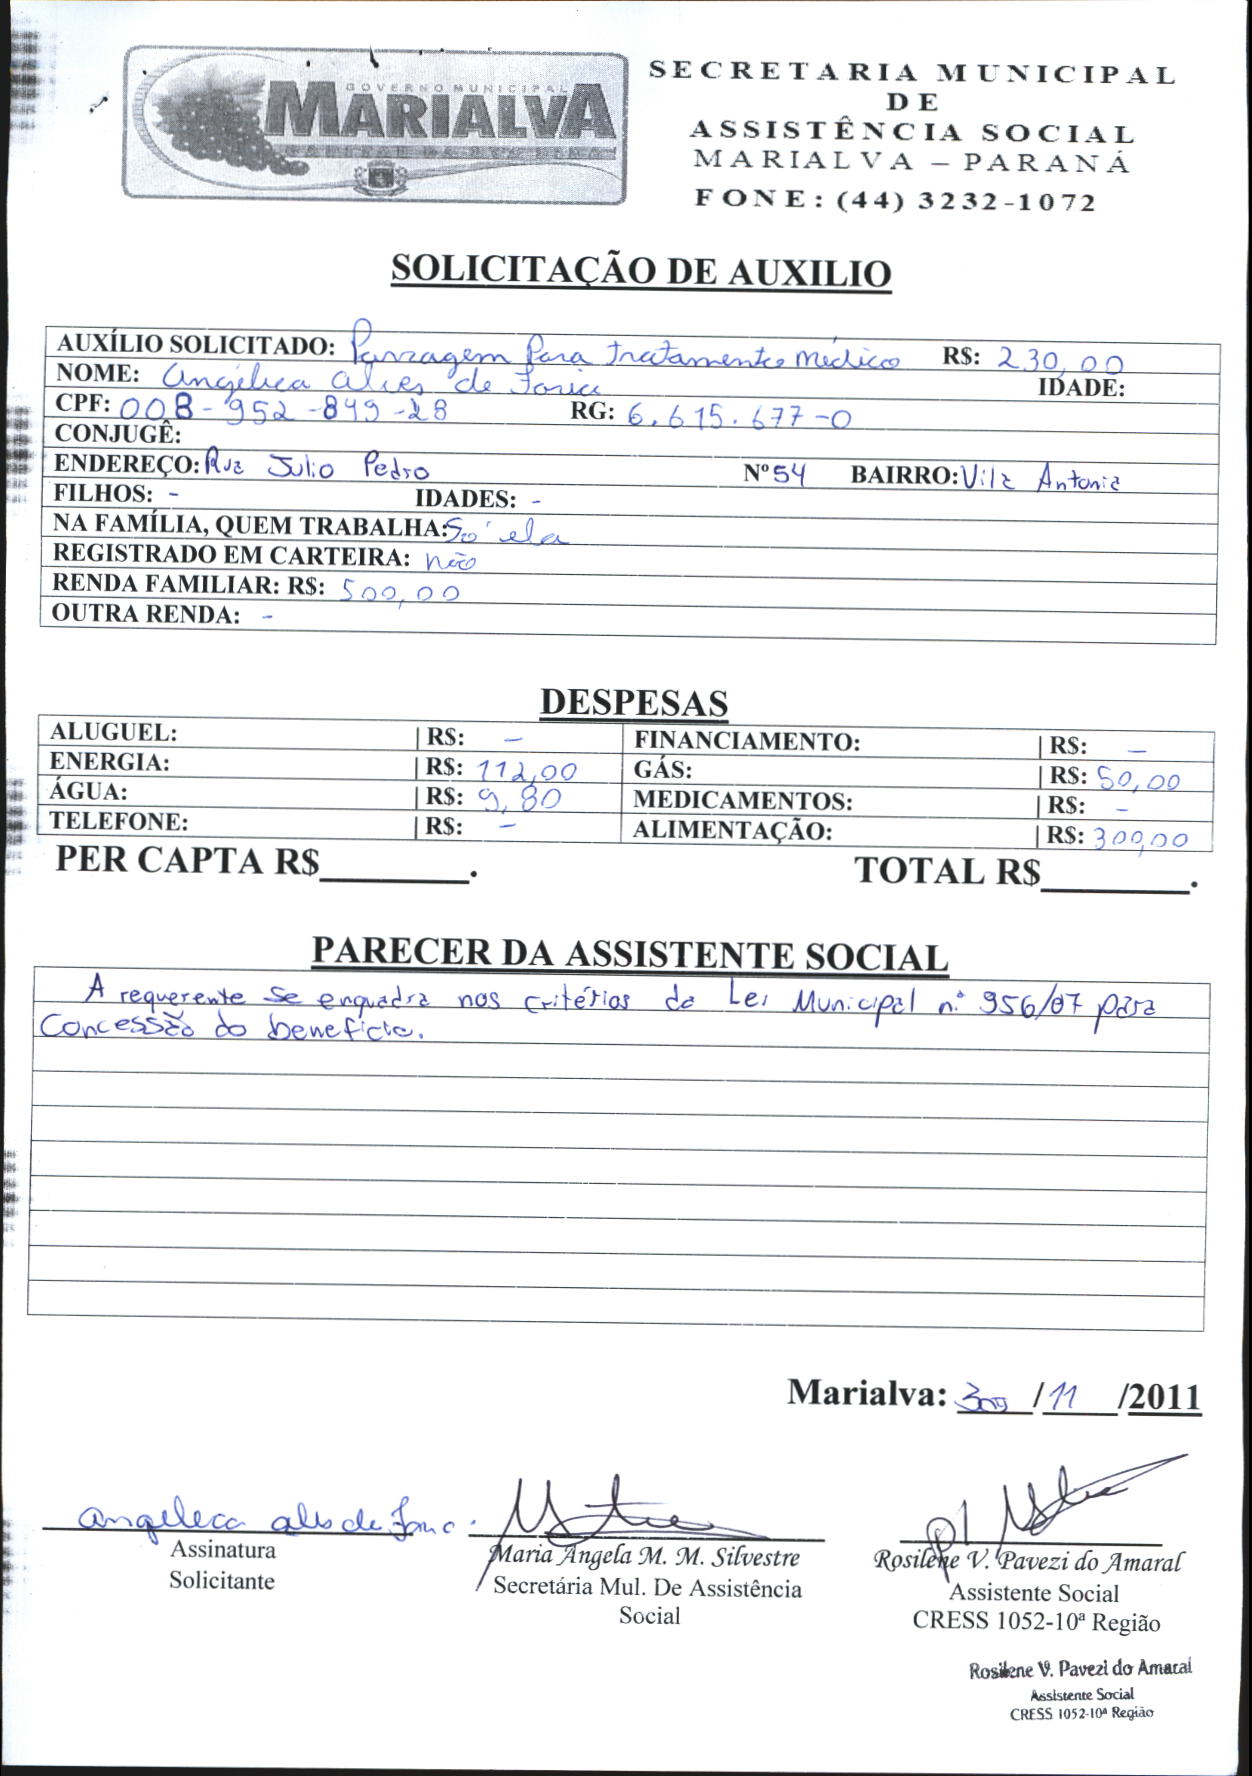 GOVERNO MUNICIPAL
MARIALVA
SECRETARIA MUNICIPAL
DE
ASSISTÊNCIA SOCIAL
MARIALVA – PARANÁ
FONE: (44) 3232-1072
SOLICITAÇÃO DE AUXILIO
AUXÍLIO SOLICITADO: Passagem Para tratamento médico R$: 230,00
NOME: Angélica Alves de Faria IDADE:
CPF: 008-952-849-28 RG: 6.615.677-0
CONJUGÊ:
ENDEREÇO: Rua Julio Pedro Nº 54 BAIRRO: Vila Antonia
FILHOS: - IDADES: -
NA FAMÍLIA, QUEM TRABALHA: Só ela
REGISTRADO EM CARTEIRA: não
RENDA FAMILIAR: R$: 500,00
OUTRA RENDA: -
DESPESAS
ALUGUEL: | R$: - FINANCIAMENTO: | R$: -
ENERGIA: | R$: 112,00 GÁS: | R$: 50,00
ÁGUA: | R$: 9,80 MEDICAMENTOS: | R$: -
TELEFONE: | R$: - ALIMENTAÇÃO: | R$: 300,00
PER CAPTA R$________. TOTAL R$________.
PARECER DA ASSISTENTE SOCIAL
A requerente se enquadra nos critérios da Lei Municipal nº 956/07 para
concessão do benefício.
Marialva: /11 /2011
Angelica Alves de Faria
Assinatura
Solicitante
Maria Ângela M. M. Silvestre
Secretária Mul. De Assistência
Social
Rosilene V. Pavezi do Amaral
Assistente Social
CRESS 1052-10ª Região
Rosilene V. Pavezi do Amaral
Assistente Social
CRESS 1052-10ª Região